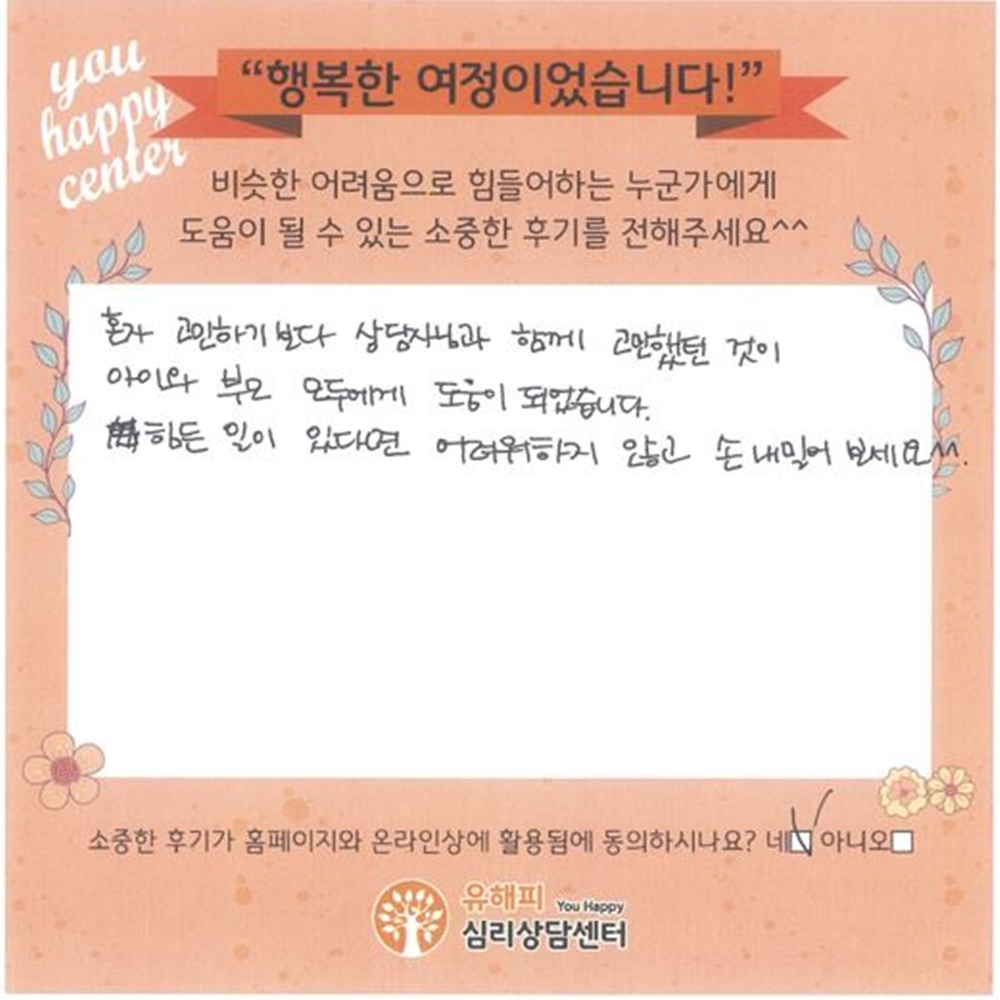 you
happy
center
“행복한 여정이었습니다!”
비슷한 어려움으로 힘들어하는 누군가에게
도움이 될 수 있는 소중한 후기를 전해주세요^^
혼자 고민하기보다 상담사님과 함께 고민했던 것이
아이와 부모 모두에게 도움이 되었습니다.
힘든 일이 있다면 어려워하지 않고 손 내밀어 보세요^^.
소중한 후기가 홈페이지와 온라인상에 활용됨에 동의하시나요? 네☑ 아니오□
유해피 You Happy
심리상담센터